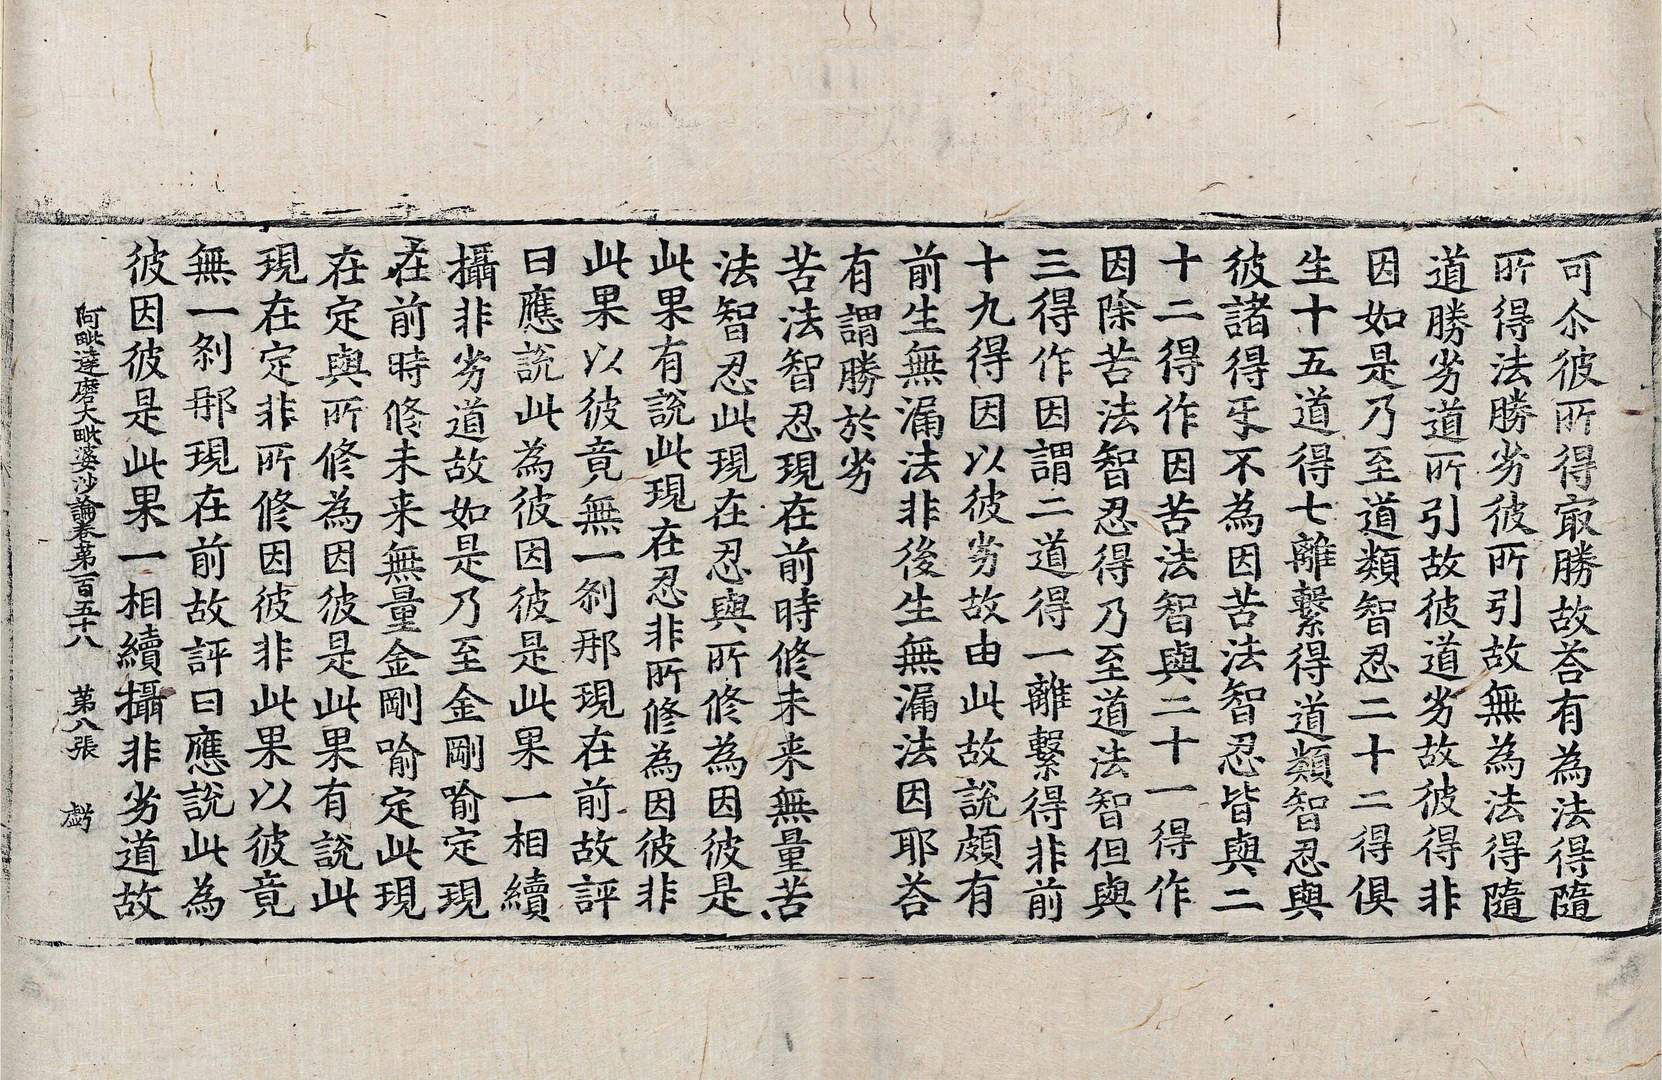 可尒彼所得㝡勝故荅有為法得隨
所得法勝劣彼所引故無為法得隨
道勝劣道所引故彼道劣故彼得非
因如是乃至道類智忍二十二得俱
生十五道得七離繫得道類智忍與
彼諸得㸦不為因苦法智忍皆與二
十二得作因苦法智與二十一得作
因除苦法智忍得乃至道法智但與
三得作因謂二道得一離繫得非前
十九得因以彼劣故由此故說頗有
前生無漏法非後生無漏法因耶荅
有謂勝於劣
苦法智忍現在前時修未来無量苦
法智忍此現在忍與所修為因彼是
此果有說此現在忍非所修為因彼非
此果以彼竟無一剎那現在前故評
曰應說此為彼因彼是此果一相續
攝非劣道故如是乃至金剛喻定現
在前時修未来無量金剛喻定此現
在定與所修為因彼是此果有說此
現在定非所修因彼非此果以彼竟
無一剎那現在前故評曰應說此為
彼因彼是此果一相續攝非劣道故
阿毗達磨大毗婆沙論卷第一百五十八 第八張 虧